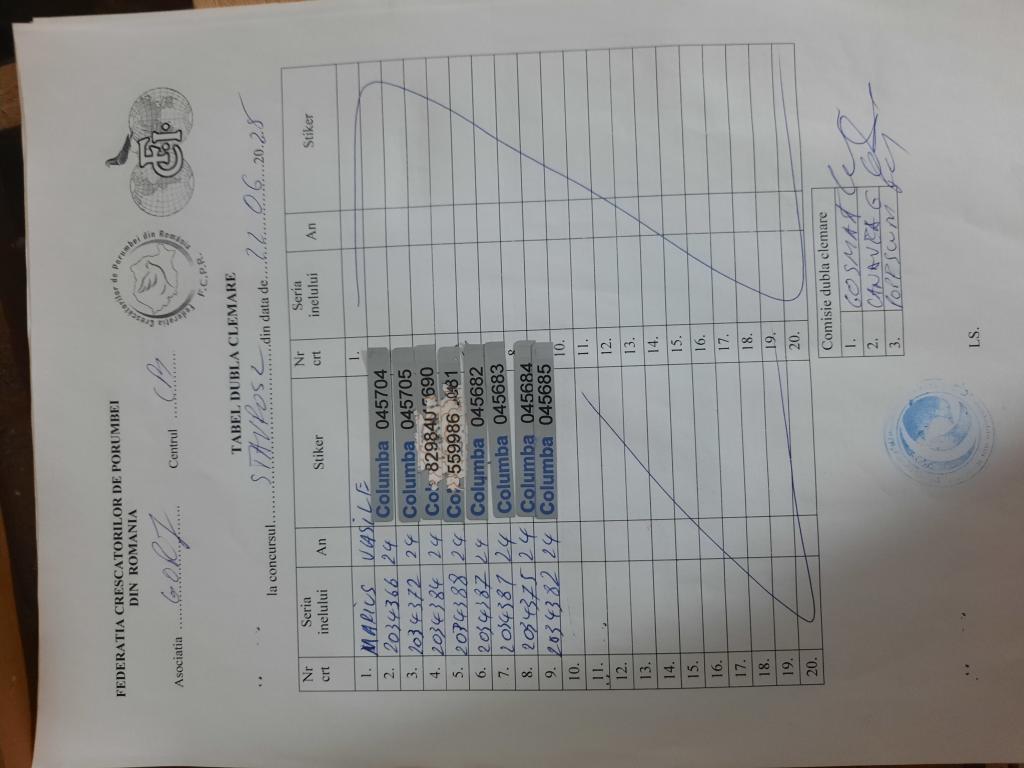 FEDERATIA CRESCATORILOR DE PORUMBEI
DIN ROMANIA
Federatia Crescatorilor de Porumbei din România
F.C.P.R.
Asociatia GORJ Centrul
TABEL DUBLA CLEMARE
la concursul din data de 06 20
Nr crt Seria inelului An Stiker Nr crt Seria inelului An Stiker
1. MARIUS VASILE 1.
2. 2034366 24 Columba 045704
3. 2034372 24 Columba 045705
4. 2034384 24 829840 690
5. 2034388 24 559986
6. 2034387 24 Columba 045682
7. 24 Columba 045683
8. 2034375 24 Columba 045684
9. 2034382 24 Columba 045685
10. 10.
11. 11.
12. 12.
13. 13.
14. 14.
15. 15.
16. 16.
17. 17.
18. 18.
19. 19.
20. 20.
Comisie dubla clemare
1. COSMA
2.
3.
LS.